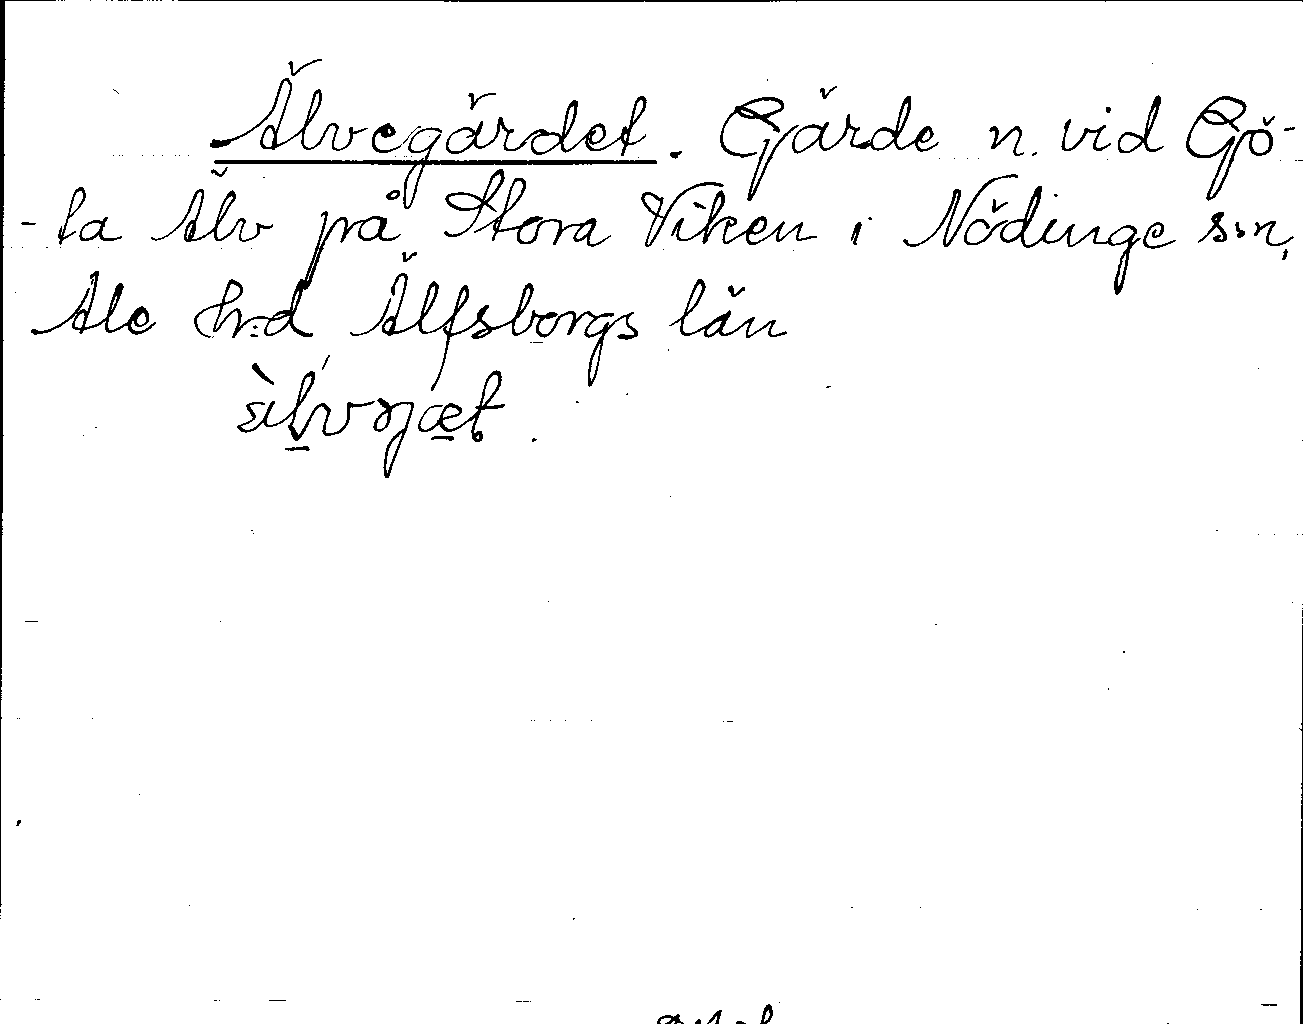 Älvegärdet. Gärde n. vid Gö-
-ta Älv på Stora Viken i Nödinge s:n,
Ale h:d Älfsborgs län